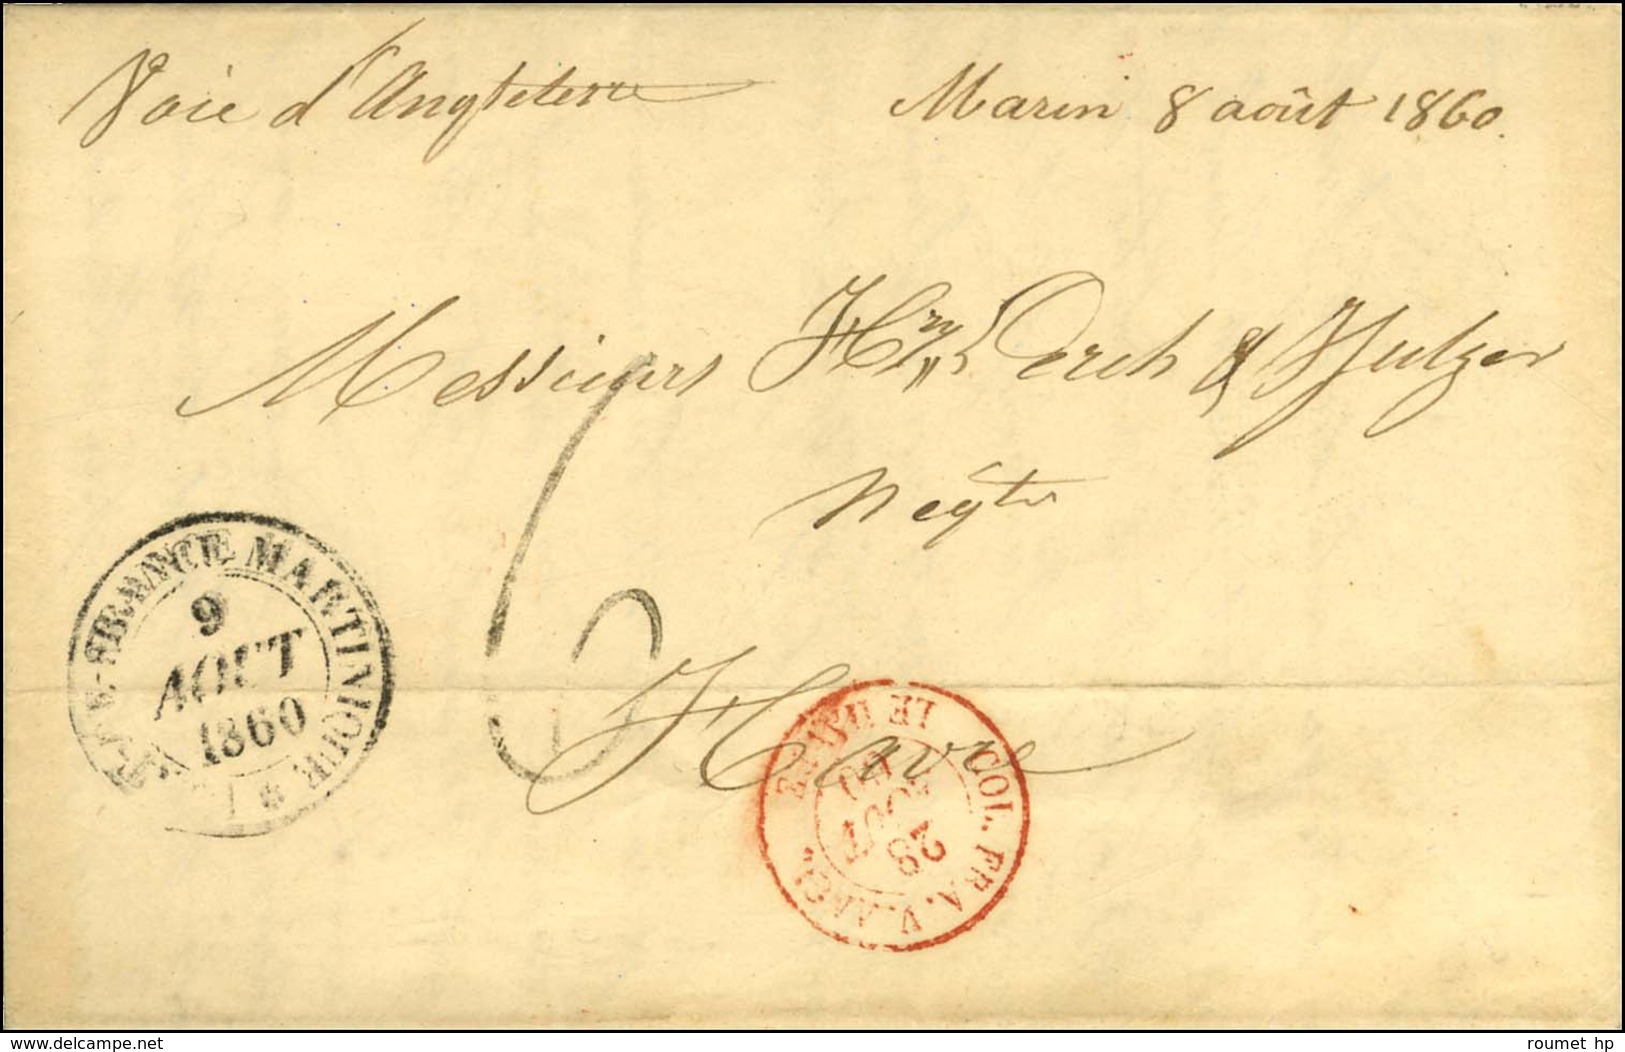 Voie d'Angleterre
Marin 8 août 1860.
Messieurs Hry Derch & Sulzer
Negts
Havre
6
FRANCE MARTINIQUE *
9
AOUT
1860
COL. FRA. V. ANGL. LE HAVRE
28
AOUT
60
roumet hp